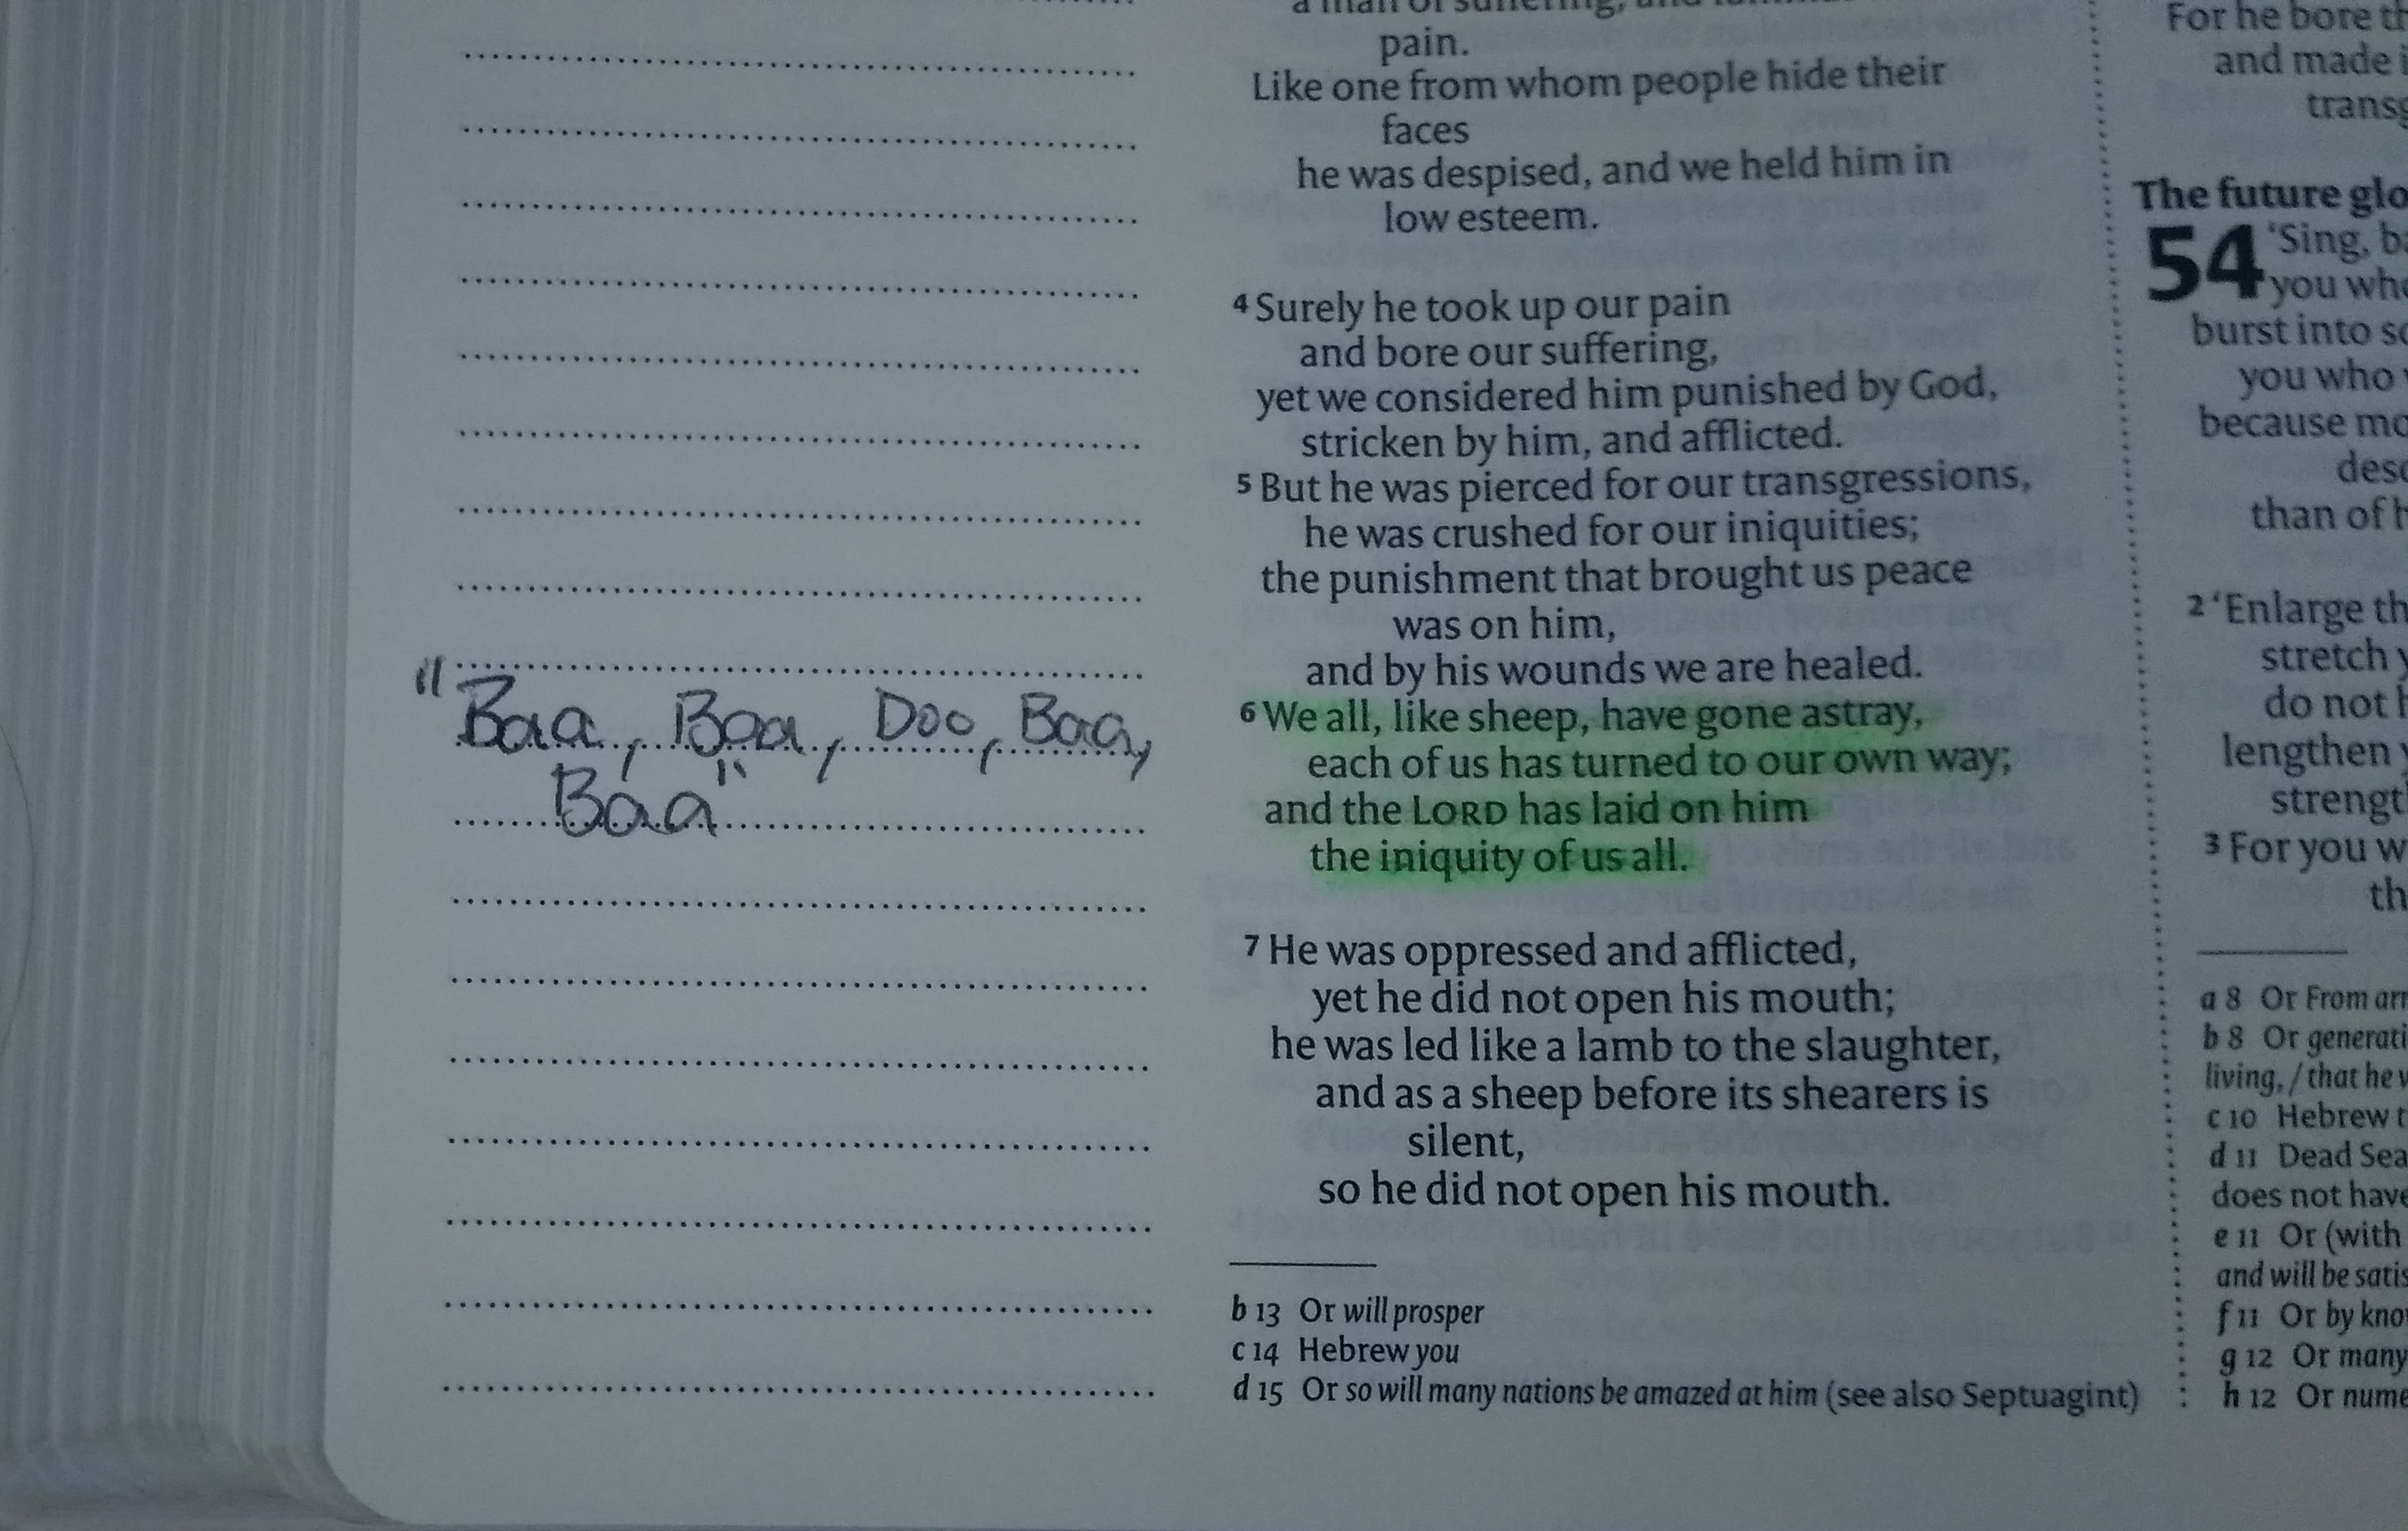 pain.
Like one from whom people hide their
faces
he was despised, and we held him in
low esteem.
4 Surely he took up our pain
and bore our suffering,
yet we considered him punished by God,
stricken by him, and afflicted.
5 But he was pierced for our transgressions,
he was crushed for our iniquities;
the punishment that brought us peace
was on him,
and by his wounds we are healed.
"Baa, Baa, Doo, Baa,
Baa"
6 We all, like sheep, have gone astray,
each of us has turned to our own way;
and the LORD has laid on him
the iniquity of us all.
7 He was oppressed and afflicted,
yet he did not open his mouth;
he was led like a lamb to the slaughter,
and as a sheep before its shearers is
silent,
so he did not open his mouth.
b 13 Or will prosper
c 14 Hebrew you
d 15 Or so will many nations be amazed at him (see also Septuagint)
For he bore
and made
The future
54 'Sing,
you
burst into
you who
because
than of
2 'Enlarge
stretch
do not
lengthen
3 For you
a 8 Or From
b 8 Or
living, / that he
c 10 Hebrew
d 11 Dead Sea
does not have
e 11 Or (with
and will be
f 11 Or by
g 12 Or many
h 12 Or